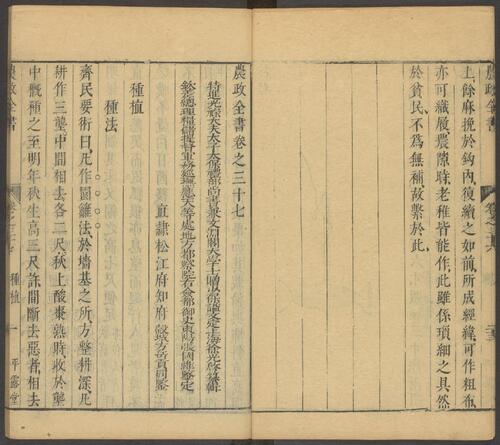 農政全書
上餘麻挽於鈎內復續之如前所成經緯可作粗布
亦可織履農隙時老稚皆能作此雖係瑣細之具然
於貧民不為無補故繫於此
農政全書卷之三十七
特進光祿大夫太子太保禮部尚書兼文淵閣大學士贈少保諡文定上海徐光啓纂輯
欽差總理糧儲提督軍務兼巡撫應天等處地方都察院右僉都御史東陽張國維鑒定
直隸松江府知府穀城方岳貢同鑒
種植
種法
齊民要術曰凡作園籬法於墻基之所方整耕深凡
耕作三壟中間相去各二尺秋上酸棗熟時收於壟
中穊種之至明年秋生高三尺許間斷去惡者相去
農政全書 種植 一 平露堂